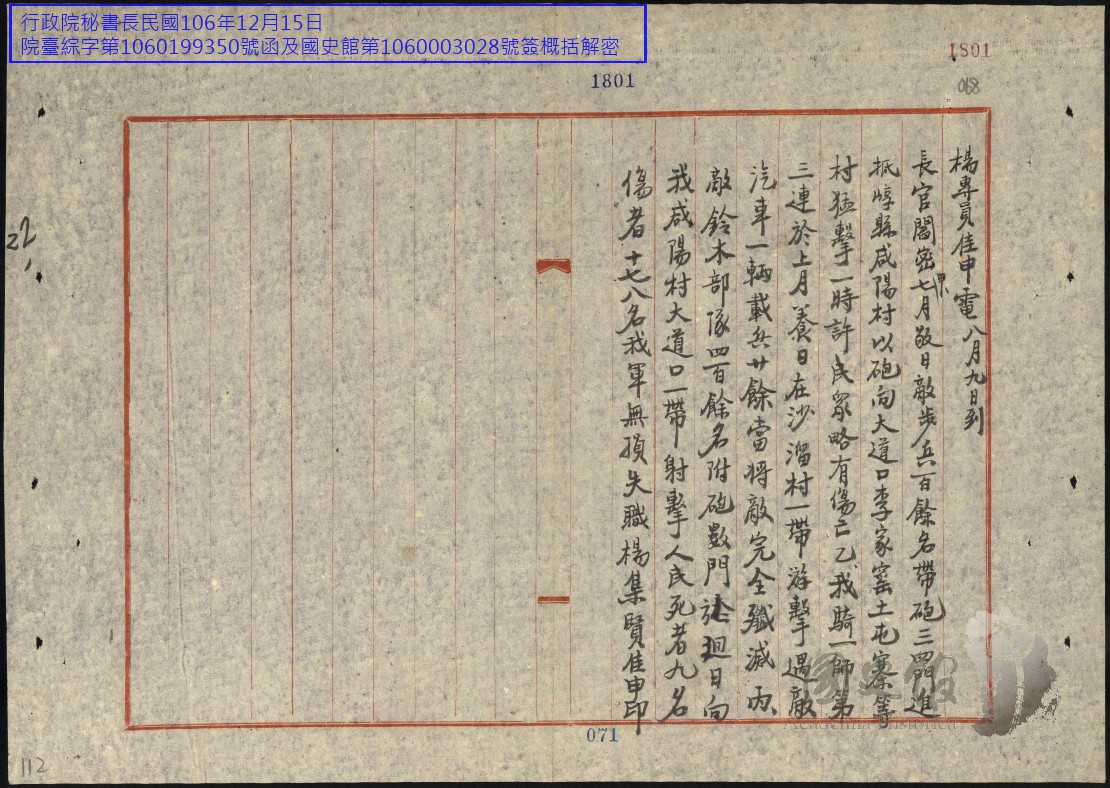 行政院秘書長民國106年12月15日
院臺綜字第1060199350號函及國史館第1060003028號簽概括解密
1801
1801
068
楊專員佳申電八月九日到
長官閻密甲七月敬日敵步兵百餘名帶砲三四門進
抵崞縣咸陽村以砲向大道口李家窰土屯寨等
村猛擊一時許民眾略有傷亡乙我騎一師第
三連於上月養日在沙溜村一帶游擊遇敵
汽車一輛載兵廿餘當將敵完全殲滅丙
敵鈴木部隊四百餘名附砲數門於迴日向
我咸陽村大道口一帶射擊人民死者九名
傷者十七八名我軍無損失職楊集賢佳申印
22
071
112
國史館
Academia Historica